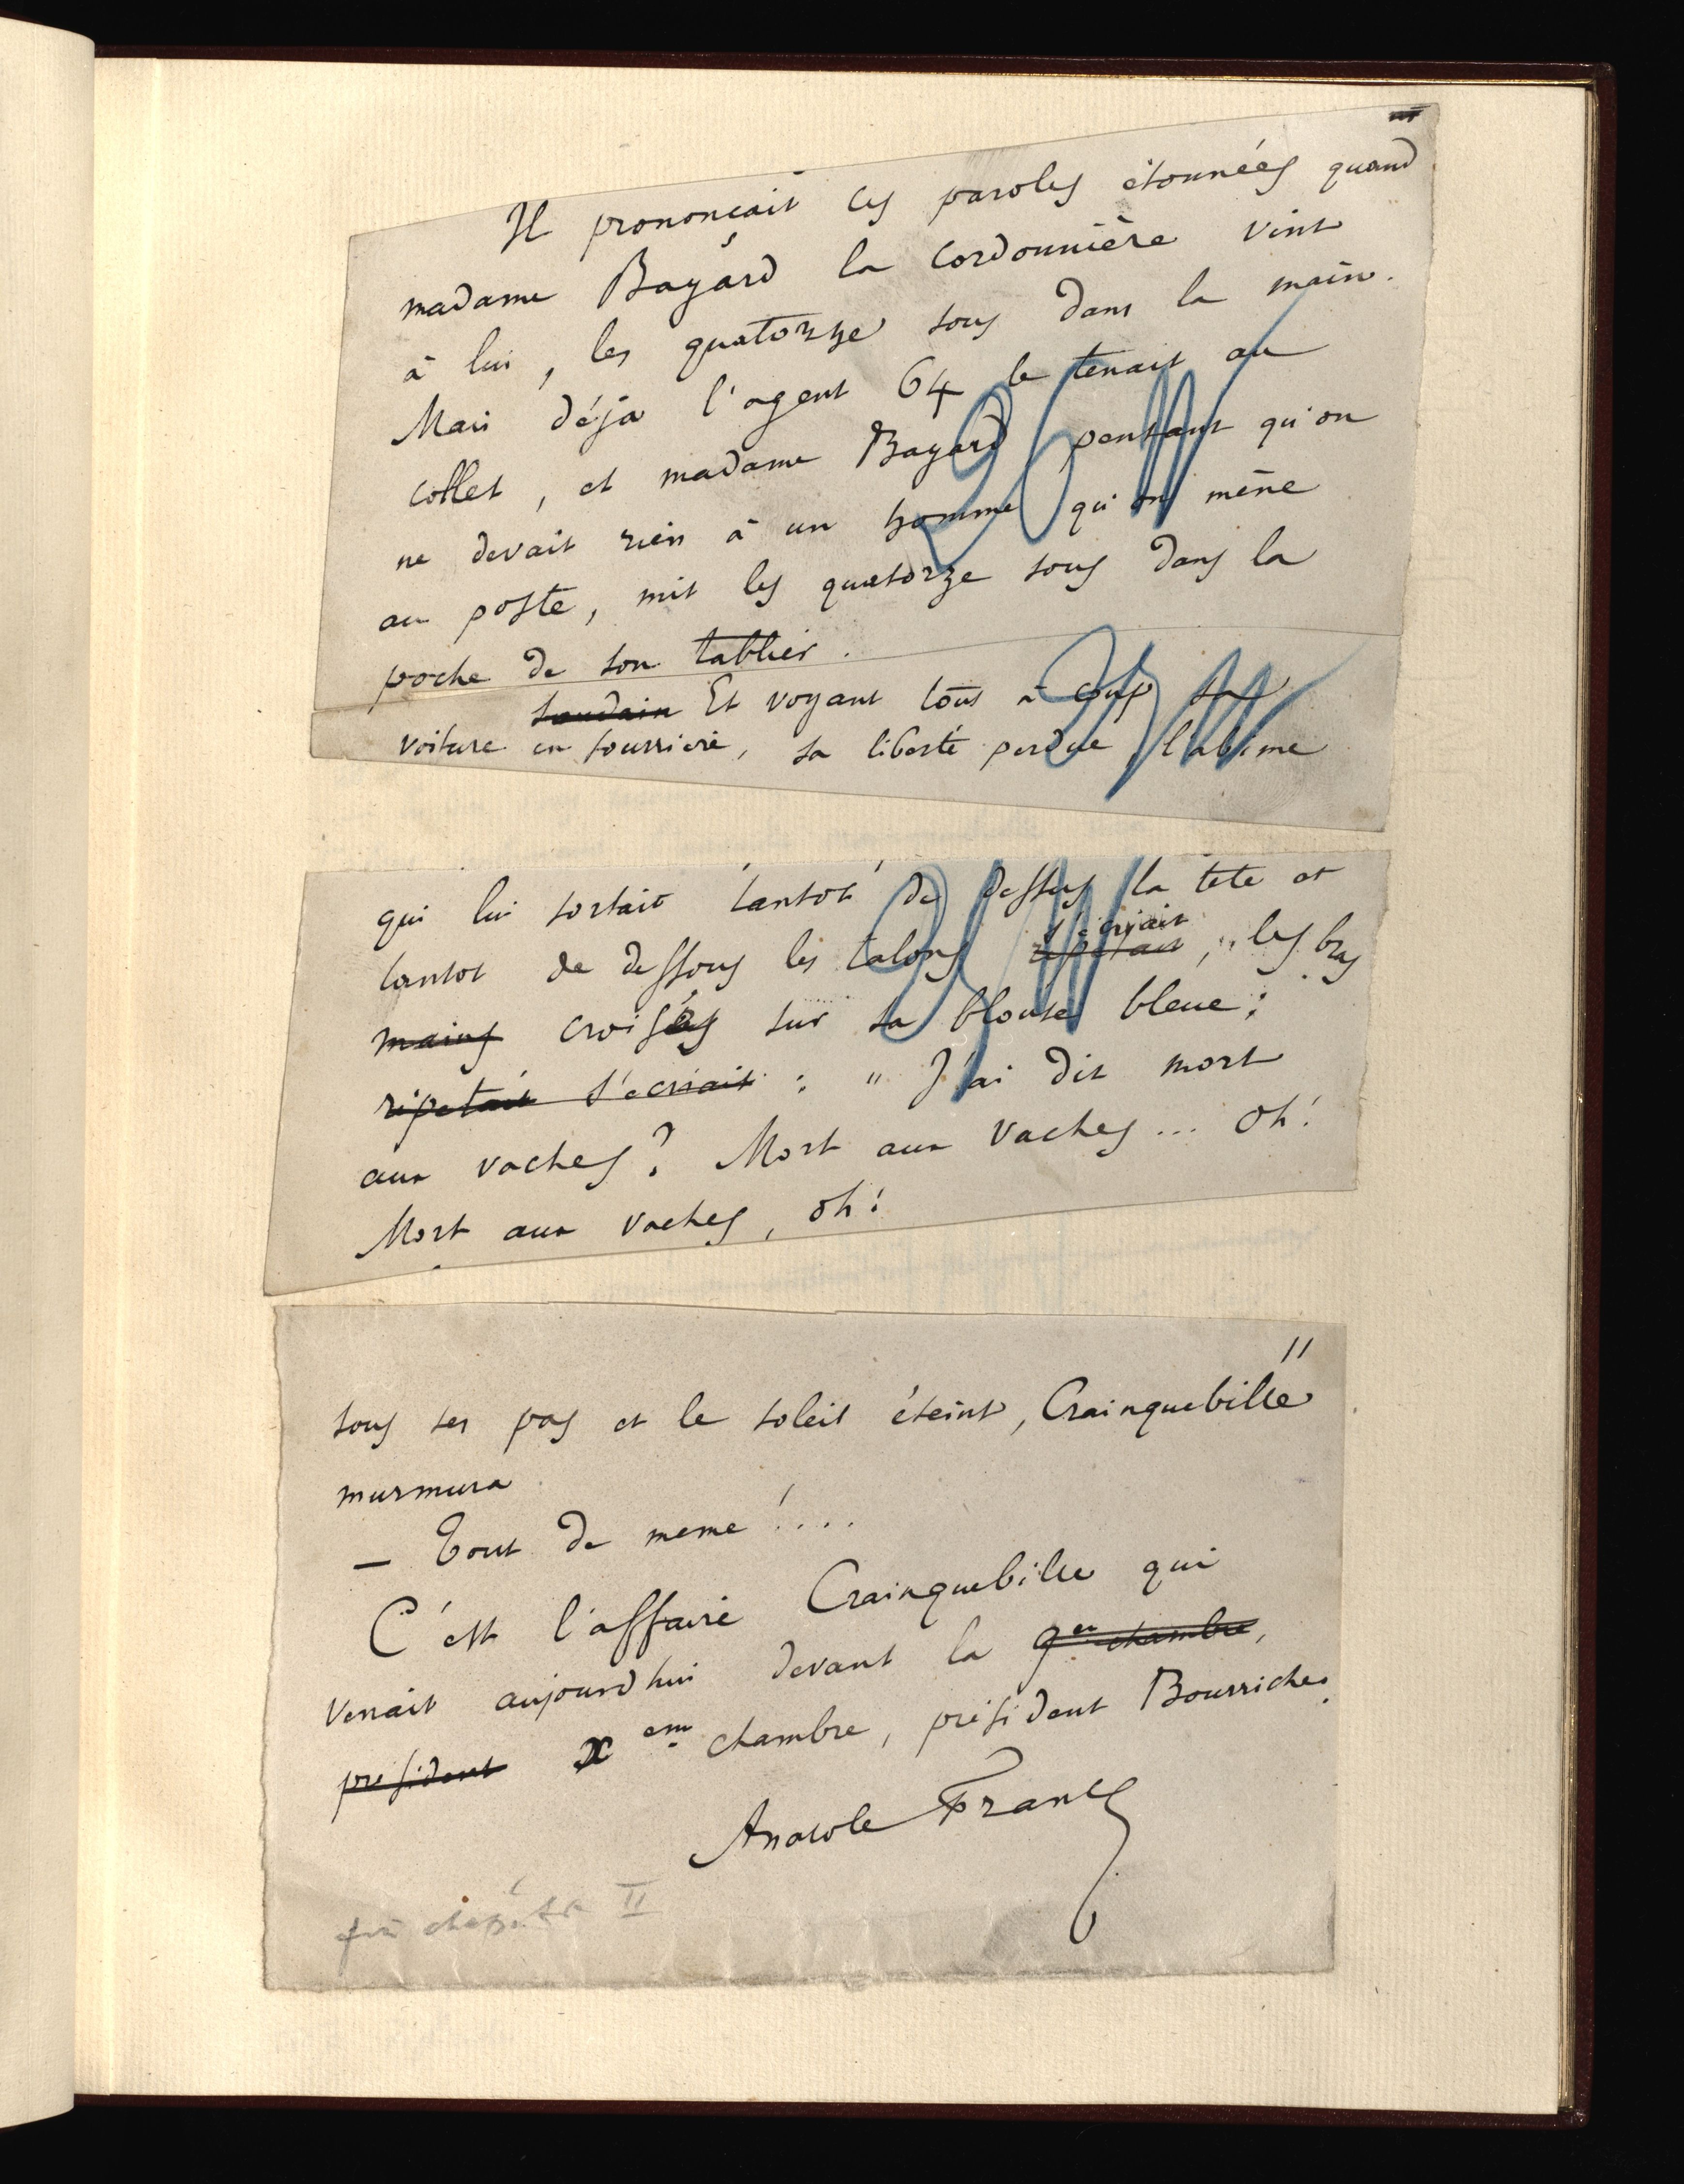 Il prononçait ces paroles étonnées quand
madame Bayard la cordonnière vint
à lui, les quatorze sous dans la main.
Mais déjà l'agent 64 le tenait au
collet, et madame Bayard pensant qu'on
ne devait rien à un homme qu'on mène
au poste, mit les quatorze sous dans la
poche de son tablier.
soudain Et voyant tout à coup sa
voiture en fourrière, sa liberté perdue, l'abîme
qui lui sortait tantot de dessus la tete et
s'écriait
tantot de dessous les talons répétait, les bras
mains croisés sur sa blouse bleue :
répétait s'écriait : " J'ai dit mort
aux vaches? Mort aux vaches... Oh!
Mort aux vaches, oh!
11
sous ses pas et le soleil éteint, Crainquebille
murmura
— Tout de meme!....
C'est l'affaire Crainquebille qui
venait aujourd'hui devant la 9em chambre,
président X em chambre, président Bourriche.
Anatole France
fin chapitre II